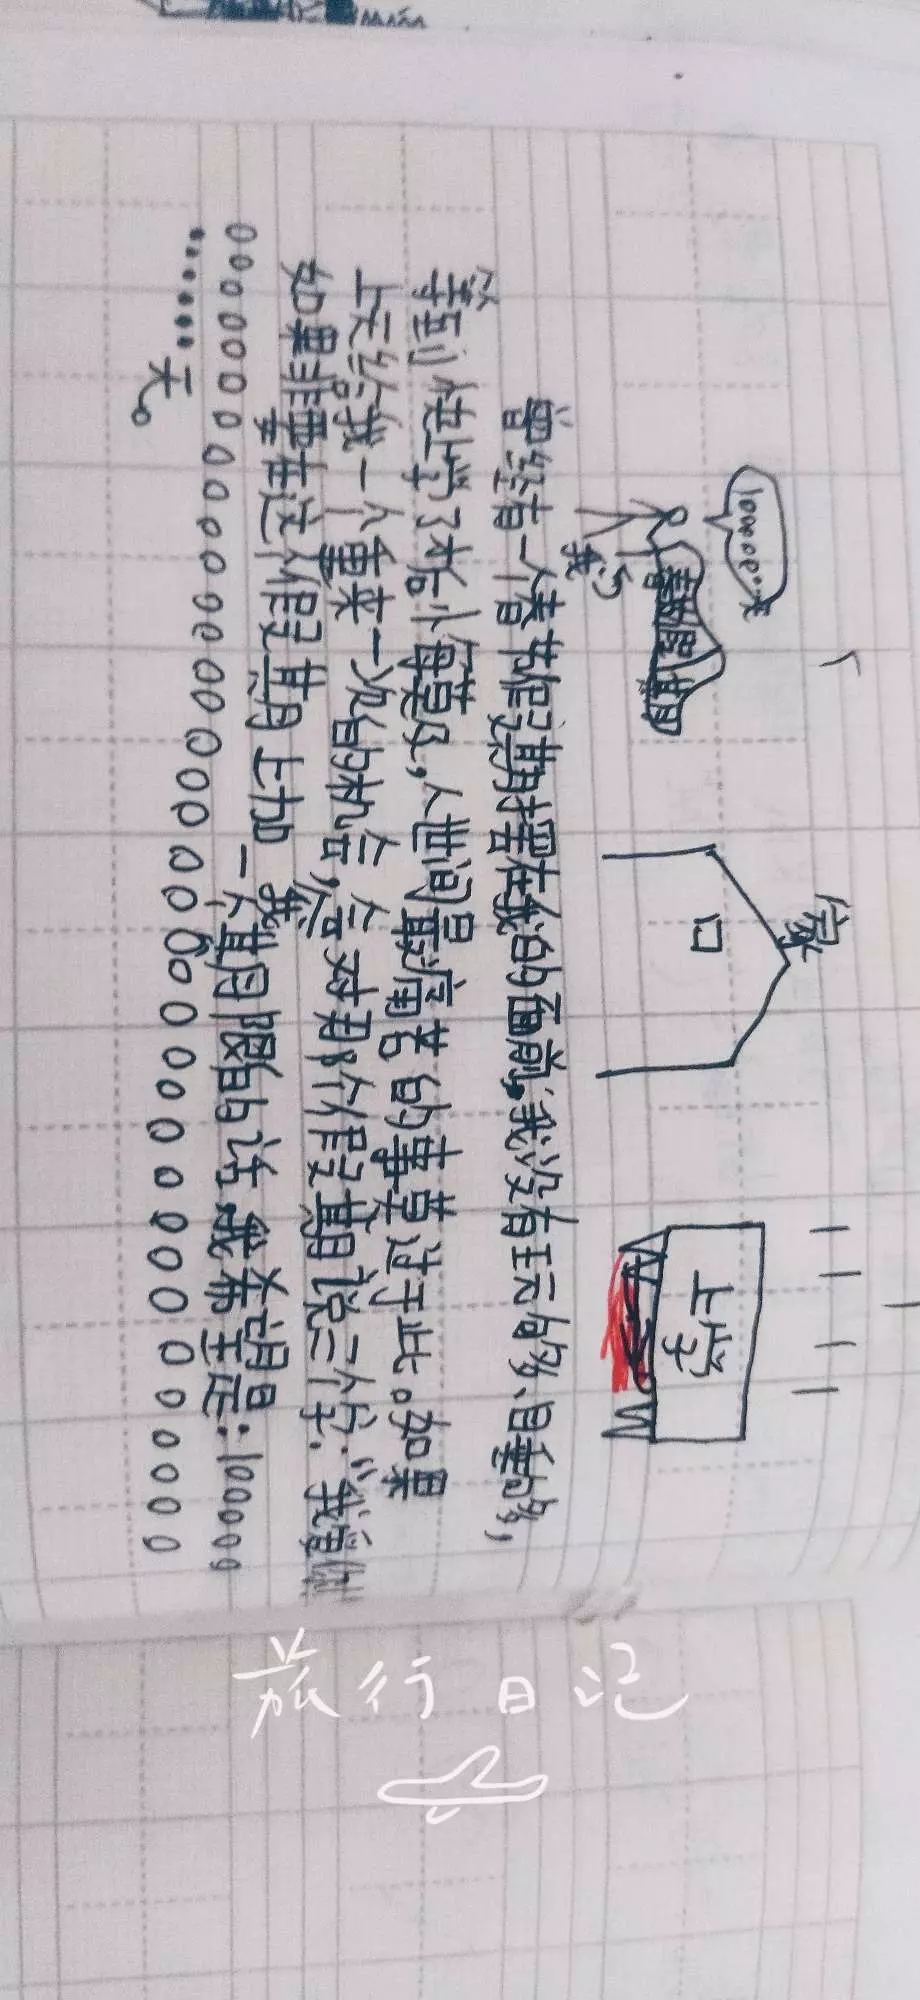 10000..天
春节假期
我的
家
上学
曾经有一个春节假期摆在我的面前,我没有玩的多、睡的多,
等到快上学了才后悔莫及,人世间最痛苦的事莫过于此。如果
上天给我一个重来一次的机会,我会对那个假期说三个字:“我爱你
如果非要在这个假期上加一个期限的话,我希望是:100000
000000000000000000000000000000000000
......天。
旅行日记